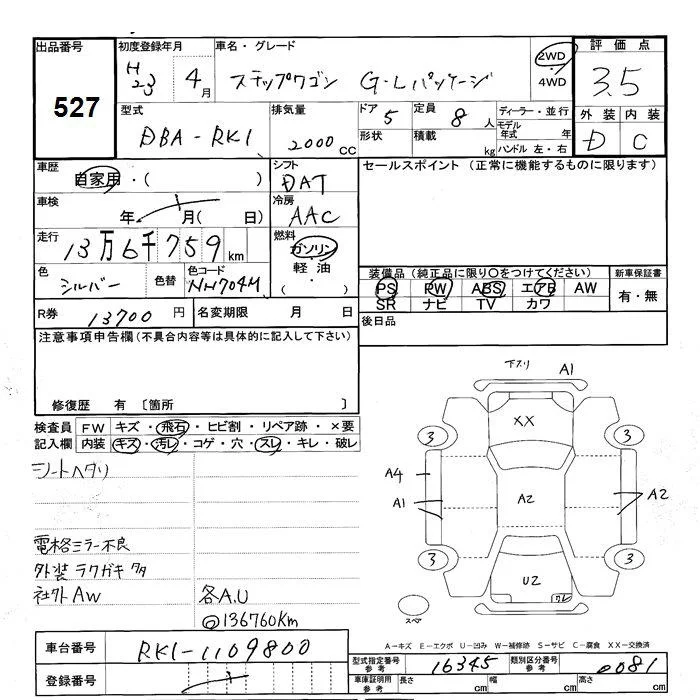 出品番号
527
初度登録年月
H23 4月
車名・グレード
ステップワゴン G-Lパッケージ
2WD
・
4WD
評価点
3.5
外装 内装
D C
型式
DBA-RK1
排気量
2000cc
ドア 5
形状
定員 8人
積載 kg
ディーラー・並行
モデル年式 年
ハンドル 左・右
車歴
自家用・( )
シフト
DAT
セールスポイント (正常に機能するものに限ります)
車検
年 月( 日)
冷房
AAC
走行
13万6千759km
燃料
ガソリン
・
軽油
・
( )
色
シルバー
色替
色コード
NH704M
装備品(純正品に限り○をつけてください)
新車保証書
有・無
PS PW ABS エアB AW
SR ナビ TV カワ
R券 13700円
名変期限 月 日
後日品
注意事項申告欄(不具合内容等は具体的に記入して下さい)
修復歴 有 〔箇所 〕
検査員記入欄
FW キズ・飛石・ヒビ割・リペア跡・×要
内装 キズ・汚レ・コゲ・穴・スレ・キレ・破レ
シートヘタリ
電格ミラー不良
外装ラクガキタタ
社外AW 各A.U
@136760km
下スリ A1
XX
3 3
A4
A1 A2 A2
3 3
U2
ワレ
スペア
A-キズ E-エクボ U-凹み W-補修跡 S-サビ C-腐食 XX-交換済
車台番号
RK1-1109800
登録番号
型式指定番号
参考
16345
類別区分番号
参考
0081
車庫証明用
参考
長さ cm
幅 cm
高さ cm